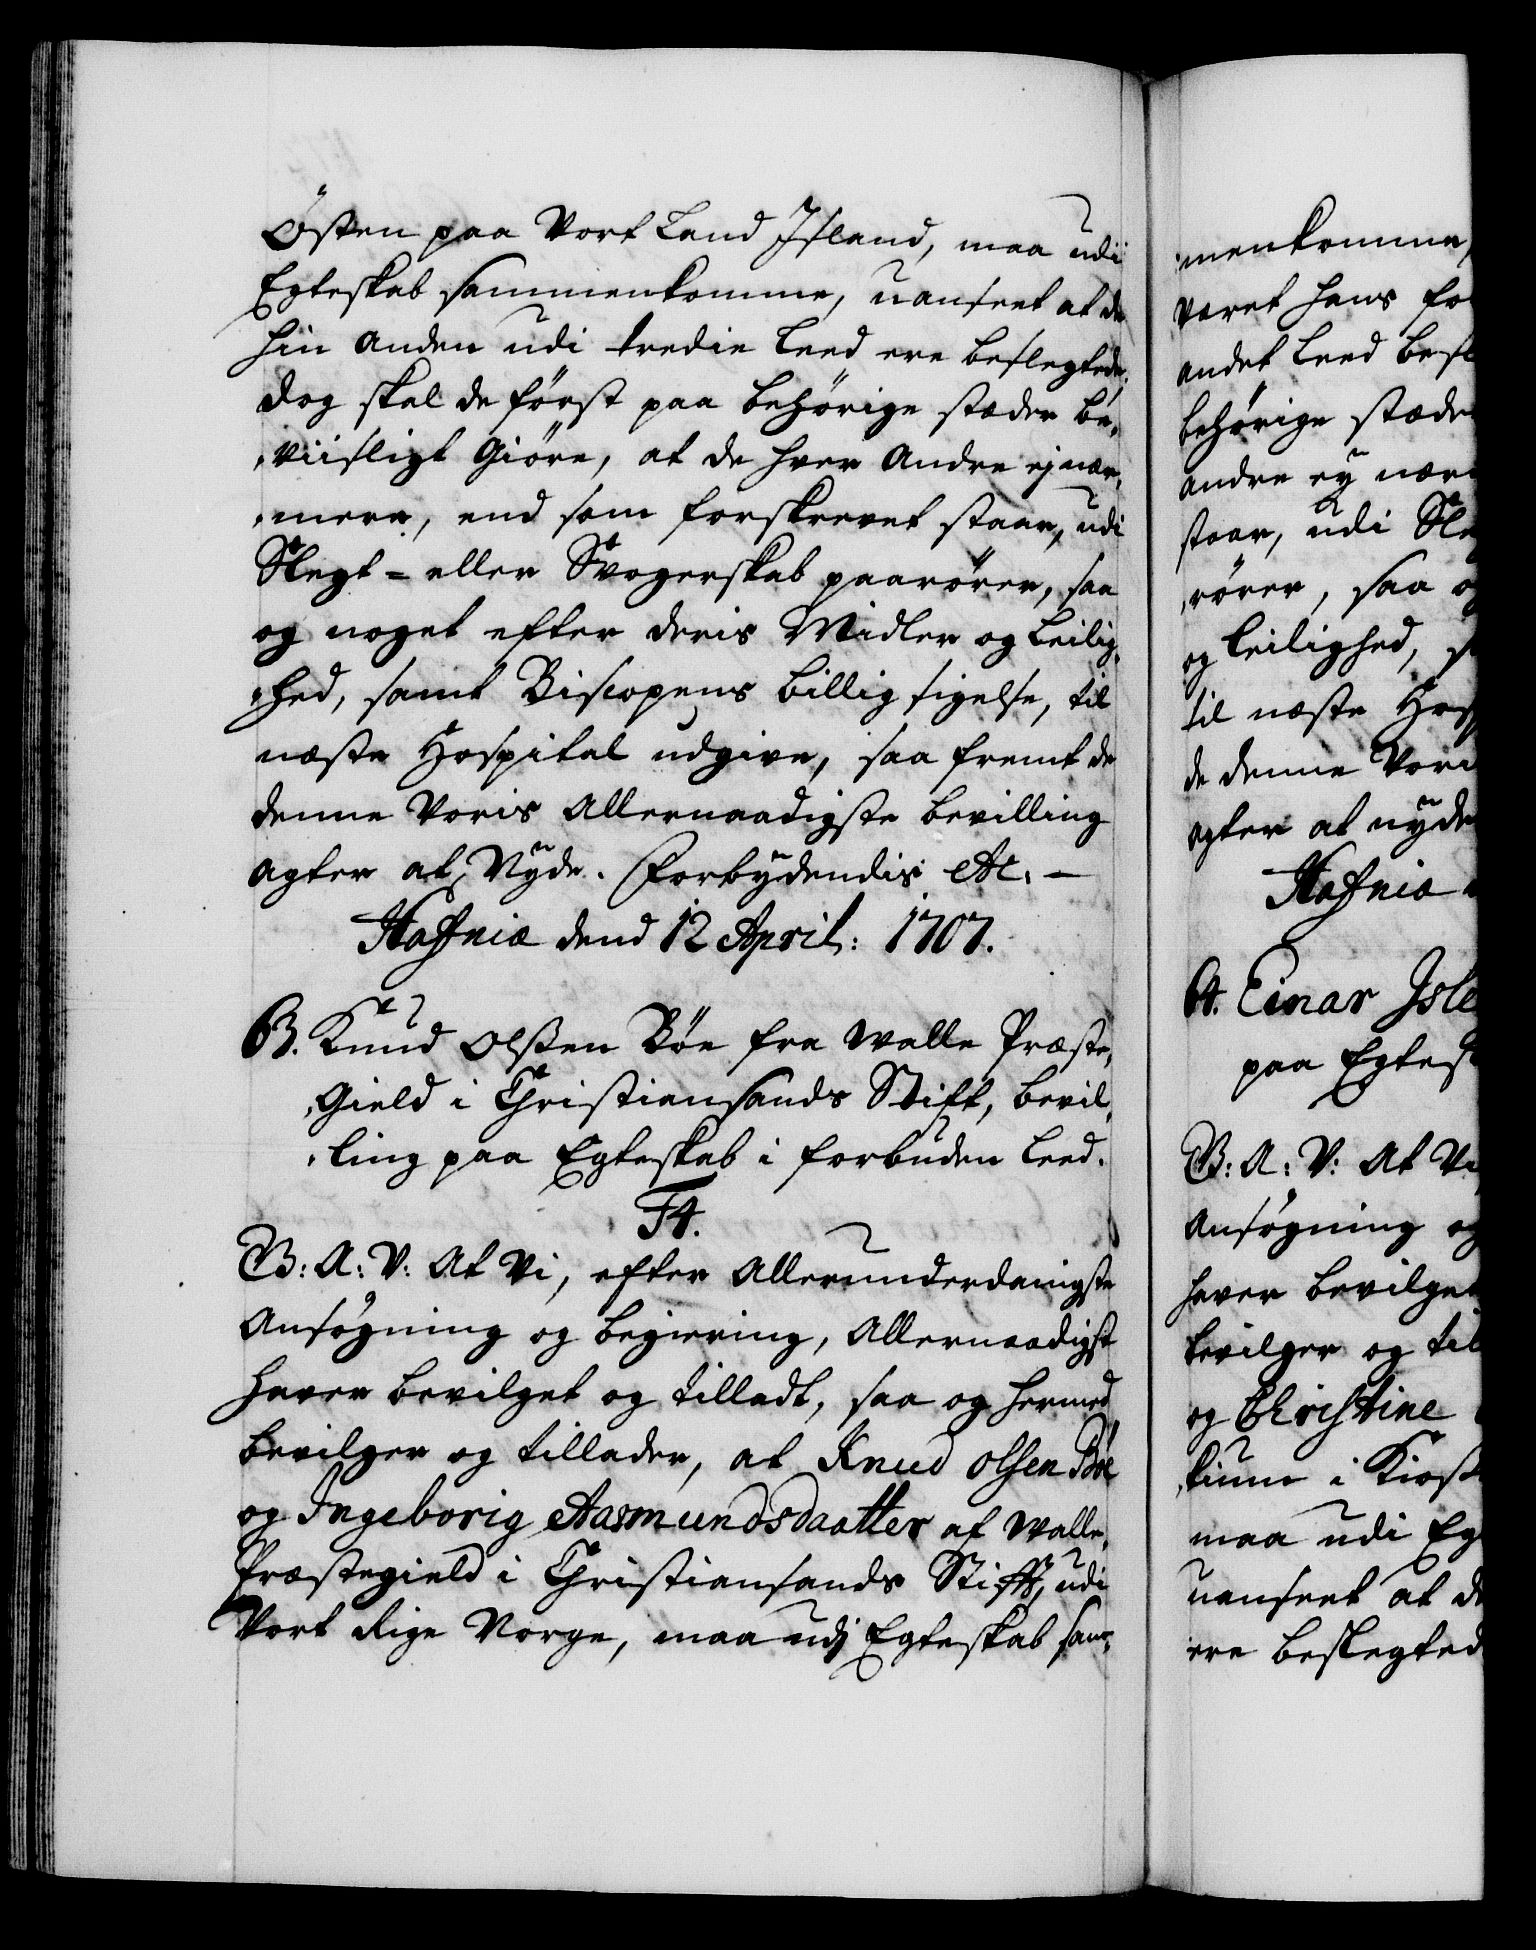 Østen paa Vort Land Island, maa udi
Egteskab sammenkomme, uanseet at de
hin anden udi tredie Leed ere beslegtede,
dog skal de først paa behørige stæder be-
viisligt Giøre, at de hver Andre ej nær-
mere, end som forskrevet staar, udi
Slegt- eller Svogerskab paarører, saa
og noget efter deris Midler og Leilig-
hed, samt Biscopens billig sigelse, til
næste Hospital udgive, saa fremt de
denne Voris Allernaadigste bevilling
agter at Nyde. Forbydendis etc. —
Hafniæ dend 12 April: 1707.
B. Knud Olssen Bøe fra Walle Præste-
Gield i Christiansands Stift, bevil-
ling paa Egteskab i forbuden Leed.
F4.
G: A: V: At Vi, efter Allerunderdanigste
Ansøgning og begiering, Allernaadigst
haver bevilget og tilladt, saa og hermed
bevilger og tillader, at Knud olssen Bøe
og Ingeborig Aasmundsdaatter af Walle
Præstegield i Christiansands Stifft, udi
Vort Rige Norge, maa udj Egteskab sam-
menkomme,
været hans for
andet Leed besl
behørige stæder
andre ey nærm
staar, udi Sle
rører, saa og
og Leilighed, s
til næste Hosp
de denne Vori
agter at nyde
Hafniæ
A. Einar Isle
paa Egtesk
G: A: V: At Vi
Ansøgning og
haver bevilget
bevilger og til
og Christine
maa udi Eg
uanseet at de
ere beslegted